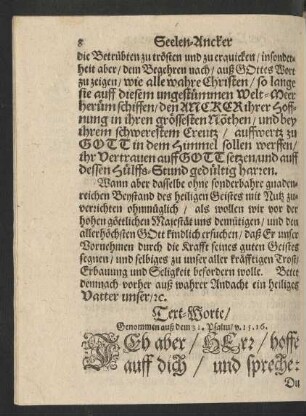 8 Seelen-Ancker
die Betrübten zu trösten und zu erquicken / insonder-
heit aber / dem Begehren nach / auß GOttes Wort
zu zeigen / wie alle wahre Christen / so lange
sie auff diesem ungestümmen Welt-Meer
herüm schiffen / den ANCKER ihrer Hoff-
nung in ihren grössesten Nöthen / und bey
ihrem schwerestem Creutz / auffwertz zu
GOTT in dem Himmel sollen werffen /
ihr Vertrauen auff GOTT setzen / und auff
dessen Hülffs-Stund gedültig harren.
Wann aber dasselbe ohne sonderbahre gnaden-
reichen Beystand des heiligen Geistes mit Nutz zu-
verrichten ohnmüglich / als wollen wir vor der
hohen götelichen Majestät uns demütigen / und den
allerhöchsten GOtt kindlich ersuchen / daß Er unser
Vornehmen durch die Krafft seines guten Geistes
segnen / und selbiges zu unser aller kräfftigen Trost /
Erbauung und Seligkeit befordern wolle. Betet
demnach vorher auß wahrer Andacht ein heiliges
Vatter unser / ꝛc.
Text-Worte /
Genommen auß dem 31. Psalm / v. 15. 16.
JCh aber / HErr / hoffe
auff dich / und spreche:
Du